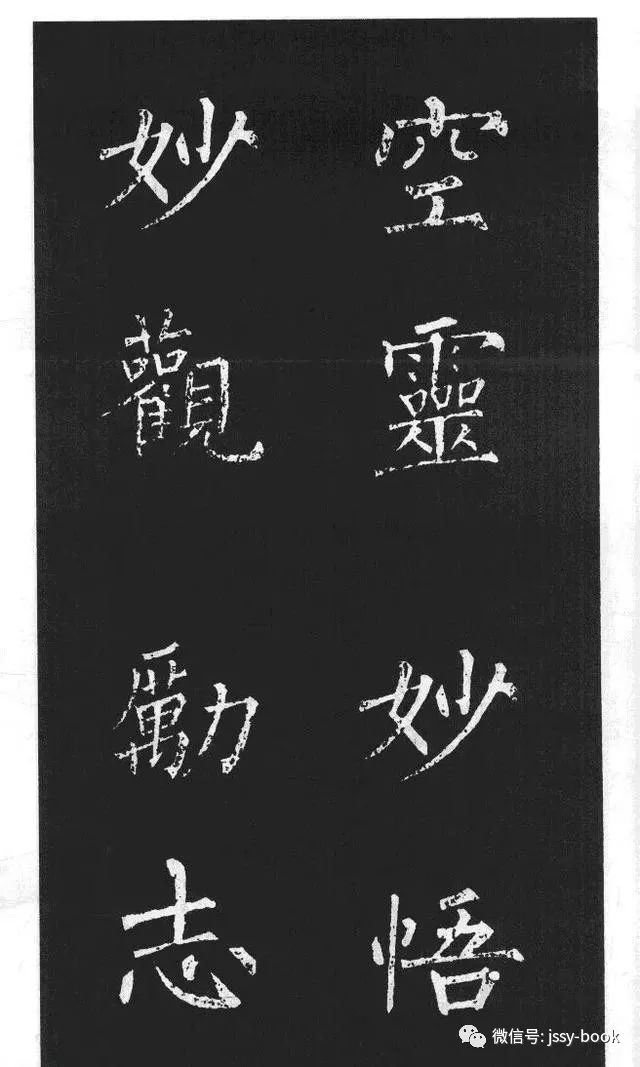 空靈妙悟
妙觀勵志
微信号: jssy-book